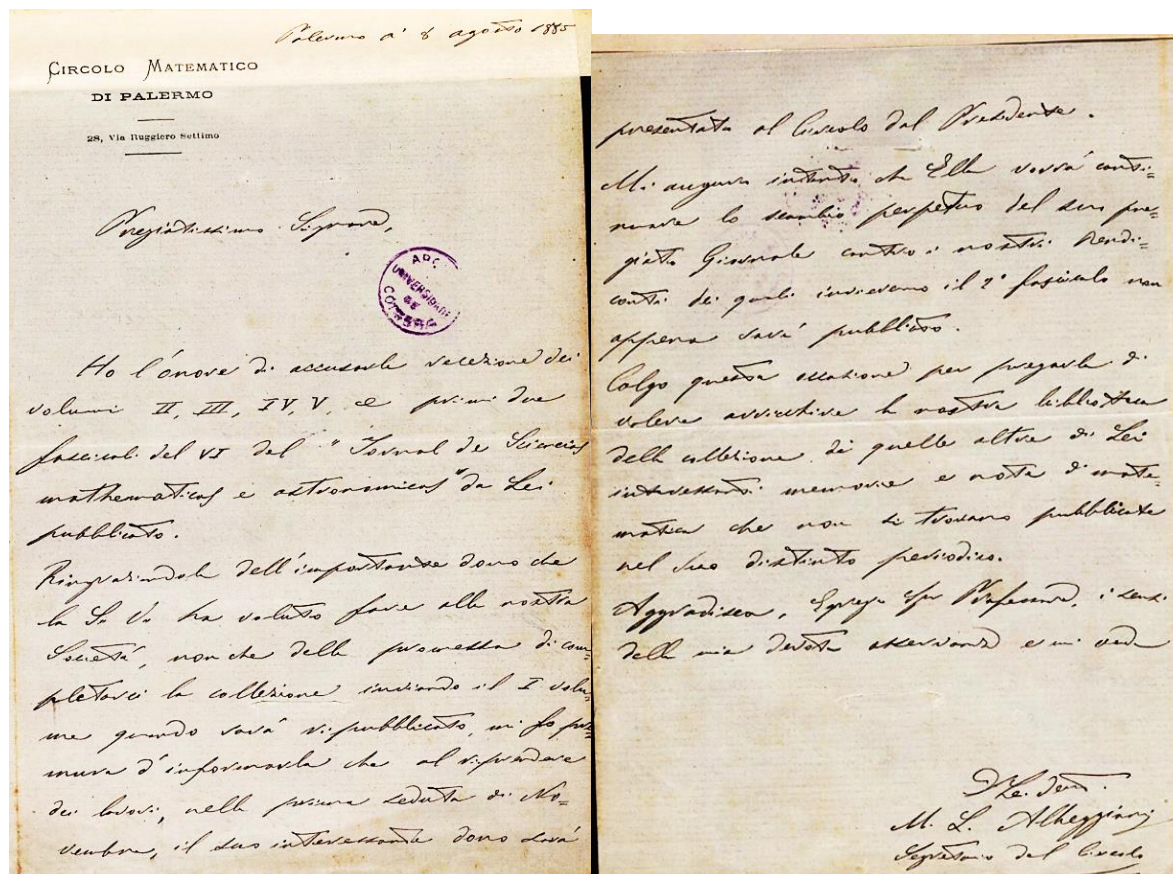 Palermo a' 8 agosto 1885
CIRCOLO MATEMATICO
DI PALERMO
28, Via Ruggiero Settimo
Pregiatissimo Signore,
ARC
UNIVERSIDADE
DE
COIMBRA
Ho l'onore di accusarle recezione dei
volumi II, III, IV, V, e primi due
fascicoli del VI del "Jornal de Sciencias
mathematicas e astronomicas" da Lei
pubblicato.
Ringraziandola dell'importante dono che
la S. V. ha voluto fare alla nostra
Società, nonche della promessa di com=
pletarci la collezione inviando il I volu=
me quando sarà ripubblicato, mi fo pre=
mura d'informarla che al riprendere
dei lavori, nella prima seduta di No=
vembre, il suo interessante dono sarà
presentato al Circolo dal Presidente.
Mi auguro intanto che Ella vorrà conti=
nuare lo scambio perpetuo del suo pre=
giato Giornale contro i nostri Rendi=
conti dei quali invieremo il 2° fascicolo non
appena sarà pubblicato.
Colgo questa occasione per pregarla di
volere arricchire la nostra biblioteca
della collezione di quelle altre di Lei
interessanti memorie e note di mate=
matica che non si trovano pubblicate
nel suo distinto periodico.
Aggradisca, Egregio Professore, i sensi
della mia devota osservanza e mi creda
Di Lei
M. L. Albeggiani
Segretario del Circolo